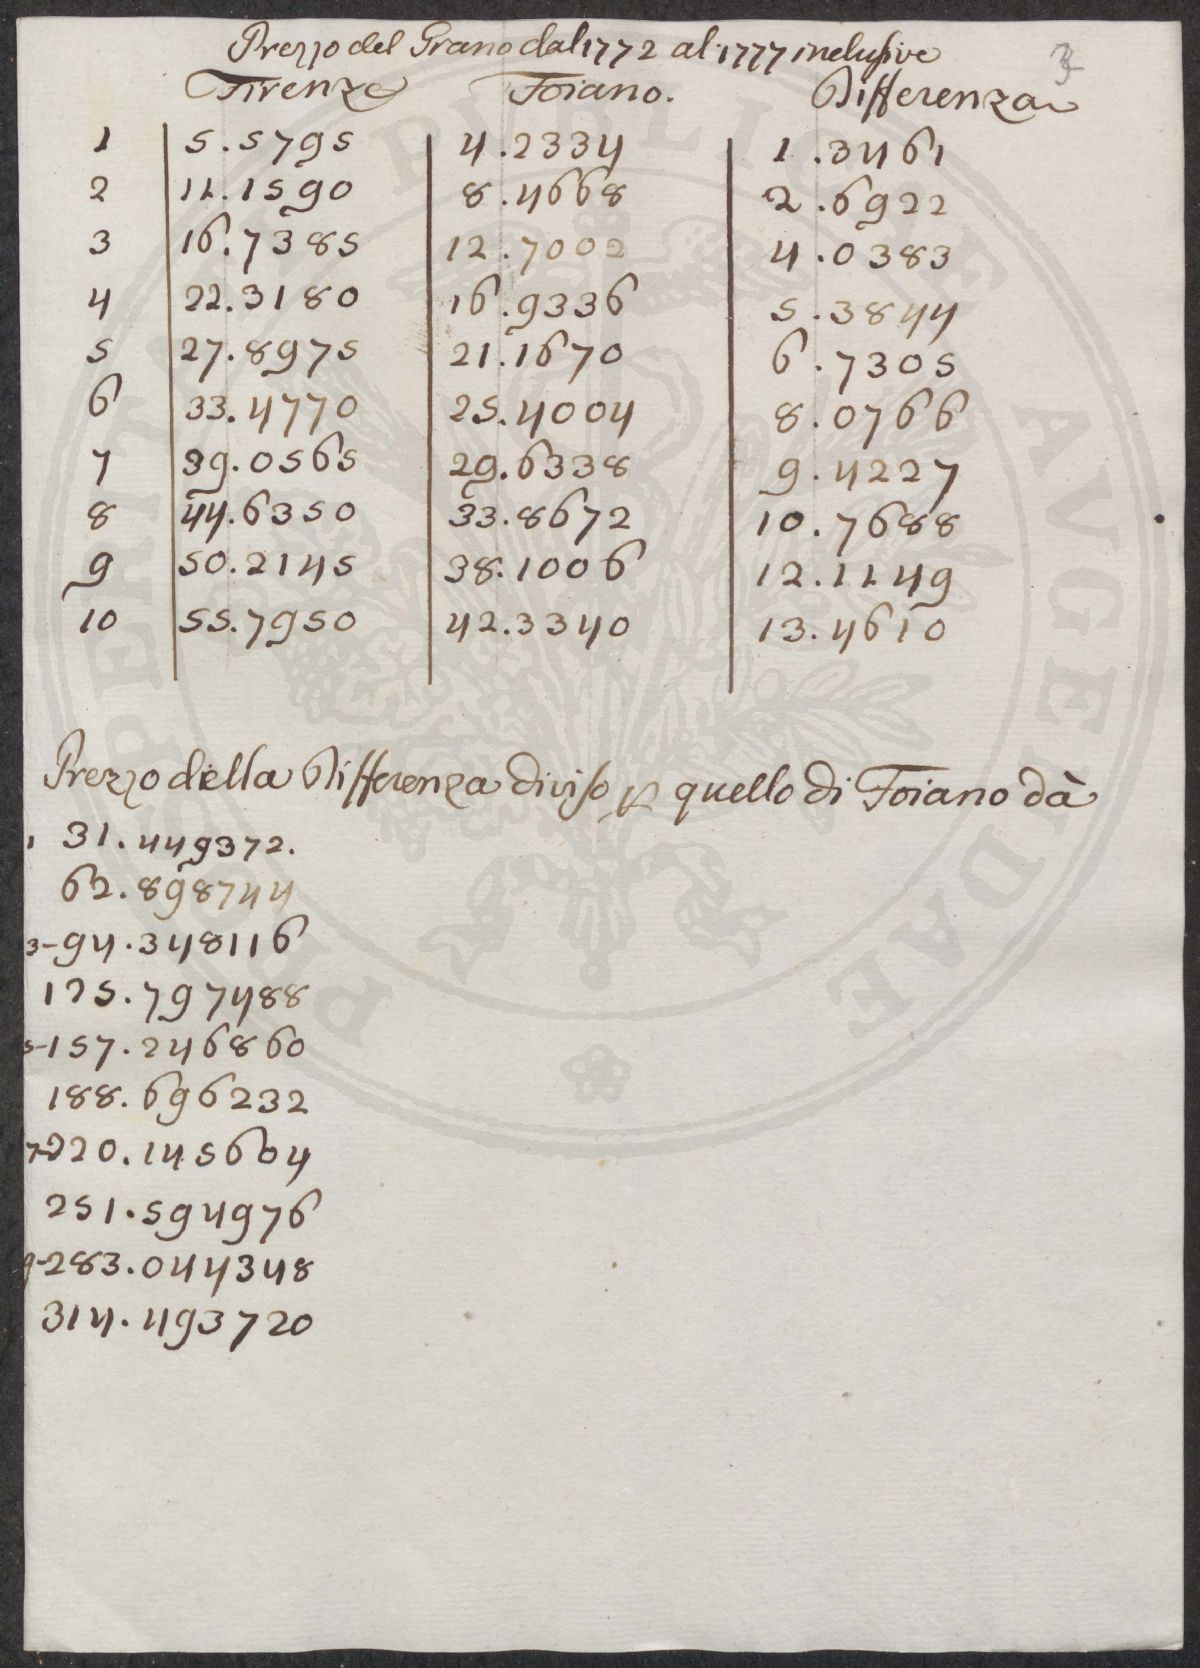 Prezzo del Grano dal 1772 al 1777 inclusive
3
Firenze Foiano. Differenza
1 5.5795 4.2334 1.3461
2 11.1590 8.4668 2.6922
3 16.7385 12.7002 4.0383
4 22.3180 16.9336 5.3844
5 27.8975 21.1670 6.7305
6 33.4770 25.4004 8.0766
7 39.0565 29.6338 9.4227
8 44.6350 33.8672 10.7688
9 50.2145 38.1006 12.1149
10 55.7950 42.3340 13.4610
Prezzo della Differenza diviso p quello di Foiano dà
1 31.449372.
62.898744
3-94.348116
125.797488
5-157.246860
188.696232
7-220.145604
251.594976
9-283.044348
314.493720